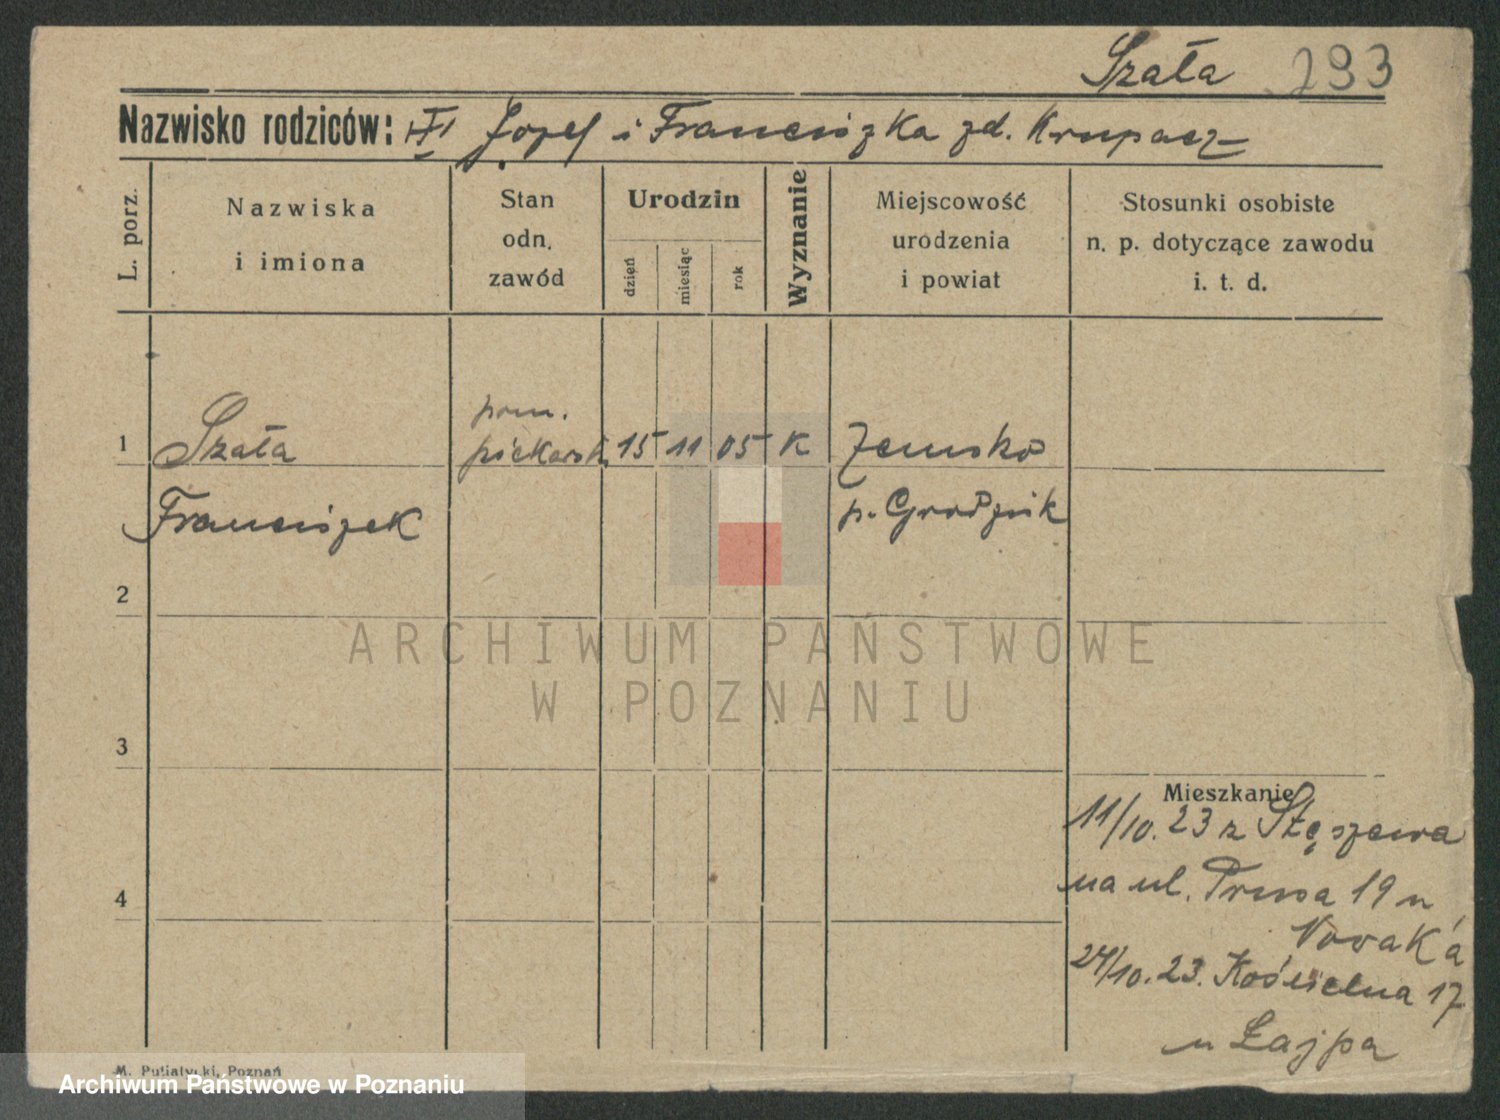 Szała 293
Nazwisko rodziców: Józef i Franciszka zd. Krupacz
L. porz.
Nazwiska
i imiona
Stan
odn.
zawód
Urodzin
dzień
miesiąc
rok
Wyznanie
Miejscowość
urodzenia
i powiat
Stosunki osobiste
n. p. dotyczące zawodu
i. t. d.
1 Szała pom. piekarsk. 15 11 05 K Zemsko
Franciszek p. Grodzisk
2
3
4
Mieszkanie
11/10. 23 z Stęszewa
na ul. Prusa 19 u
Novak'a
24/10. 23. Kościelna 17
u Łajpa
M. Putiatycki, Poznań
ARCHIWUM PAŃSTWOWE
W POZNANIU
Archiwum Państwowe w Poznaniu